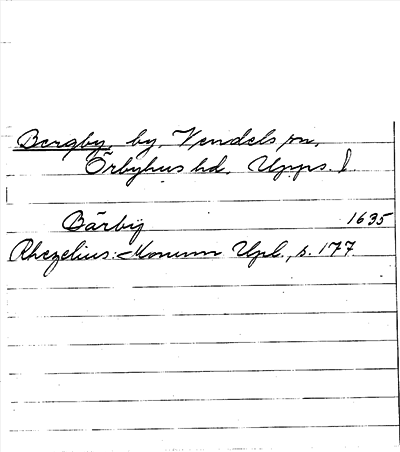 Bergby, by, Vendels sn,
Örbyhus hd, Upps. l.
Bärbij 1635
Rhezelius: Monum Upl., s. 177